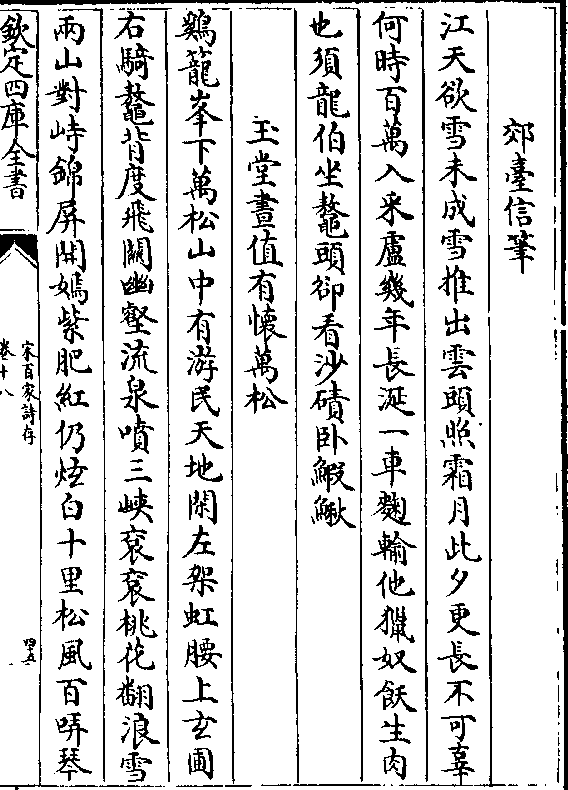 郊臺信筆
江天欲雪未成雪推出雲頭照霜月此夕更長不可辜
何時百萬入采盧幾年長涎一車麴輸他獵奴飫生肉
也須龍伯坐鼇頭卻看沙磧卧鰕鰍
玉堂晝值有懷萬松
鷄籠峯下萬松山中有游民天地閑左架虹腰上玄圃
右騎鼇背度飛關幽壑流泉噴三峽衮衮桃花翻浪雪
兩山對峙錦屏開嫣紫肥紅仍炫白十里松風百哢琴
欽定四庫全書
宋百家詩存
卷十八
四十五